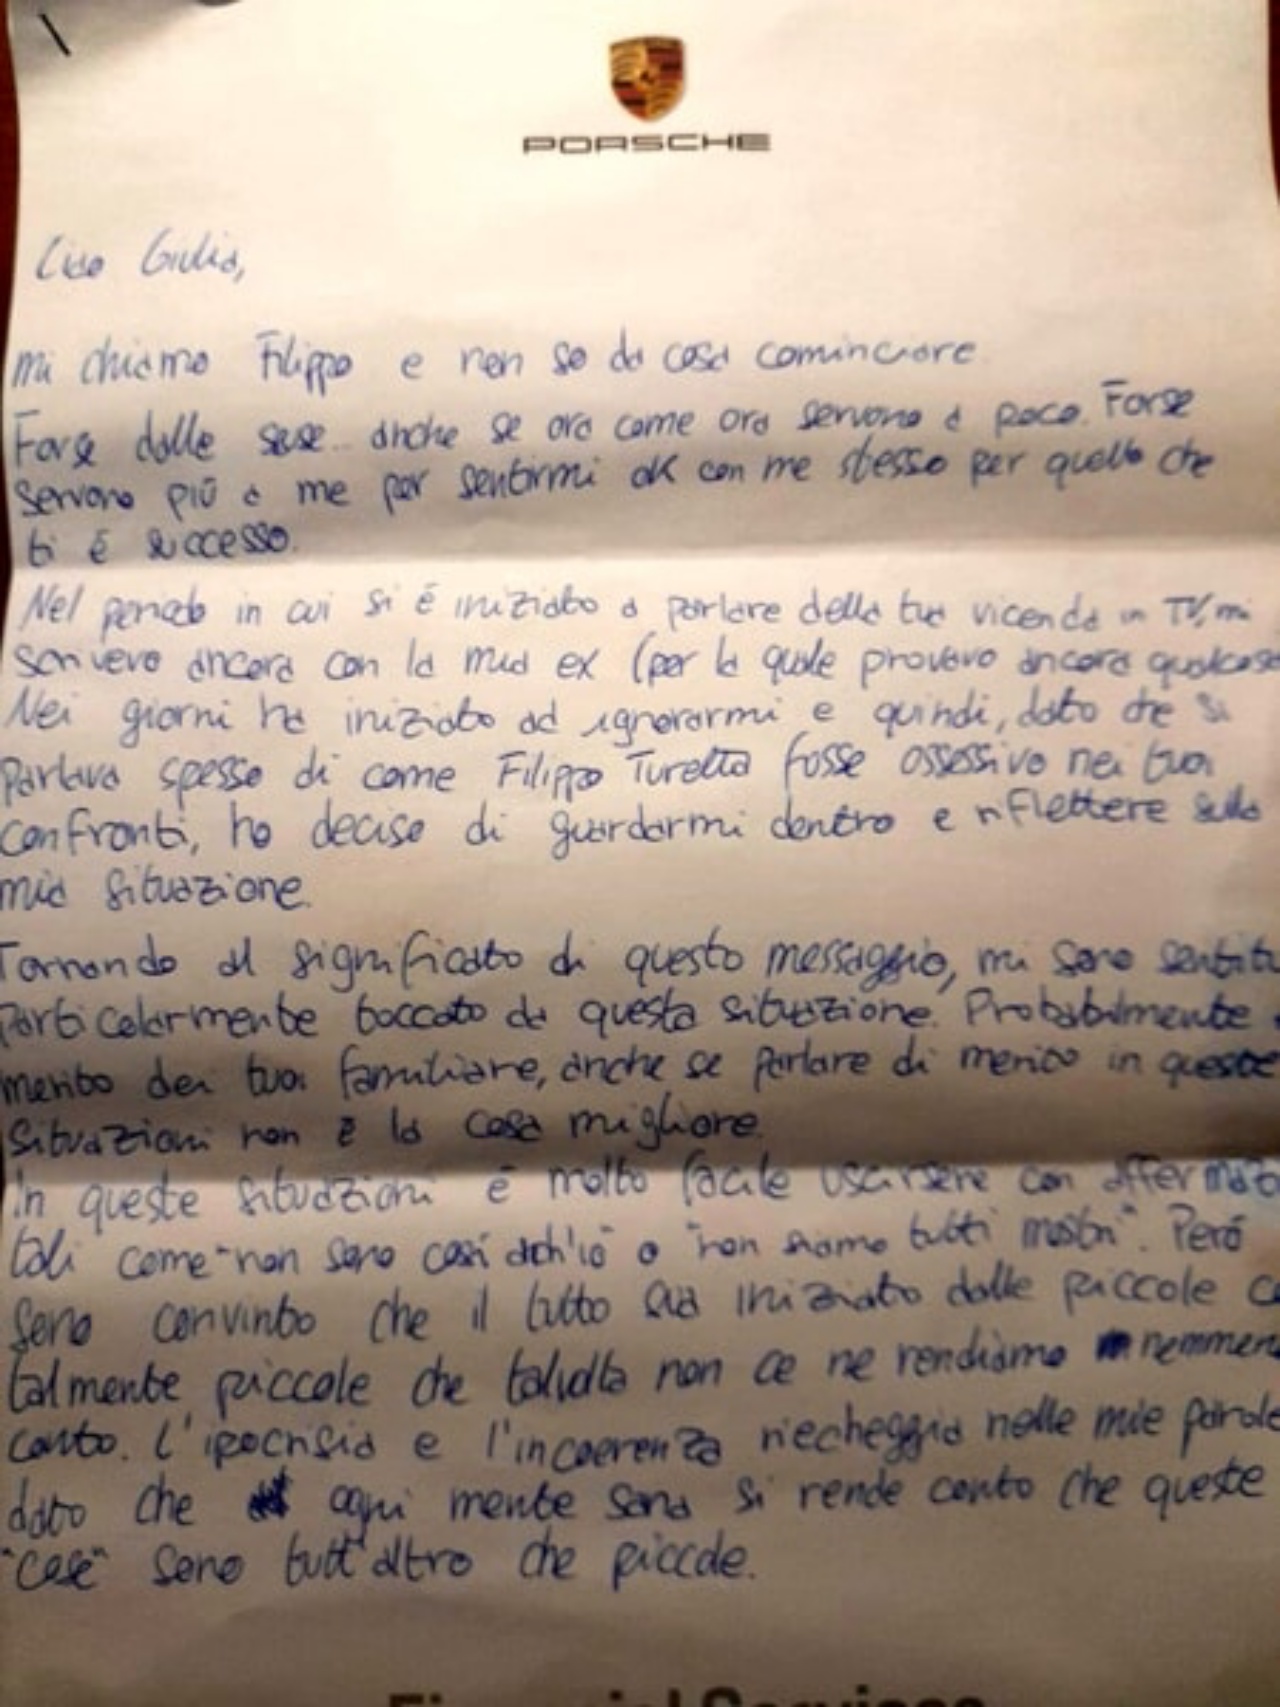 PORSCHE
Ciao Giulia,
mi chiamo Filippo e non so da cosa cominciare
Forse dalle scuse.. anche se ora come ora servono a poco. Forse
servono più a me per sentirmi ok con me stesso per quello che
ti è successo.
Nel periodo in cui si è iniziato a parlare della tua vicenda in TV, mi
scrivevo ancora con la mia ex (per la quale provavo ancora qualcosa
Nei giorni ha iniziato ad ignorarmi e quindi, dato che si
parlava spesso di come Filippo Turetta fosse ossessivo nei tuoi
confronti, ho deciso di guardarmi dentro e riflettere sulla
mia situazione.
Tornando al significato di questo messaggio, mi sono sentito
particolarmente toccato da questa situazione. Probabilmente
merito dei tuoi familiare, anche se parlare di merito in queste
situazioni non è la cosa migliore.
In queste situazioni è molto facile uscirsene con
tali come "non sono così anch'io" o "non siamo tutti mostri". Però
sono convinto che il tutto sia iniziato dalle piccole
talmente piccole che talvolta non ce ne rendiamo nemmeno
conto. L'ipocrisia e l'incoerenza riecheggia nelle mie parole
dato che ogni mente sana si rende conto che queste
"cose" sono tutt'altro che piccole.
Financial Services